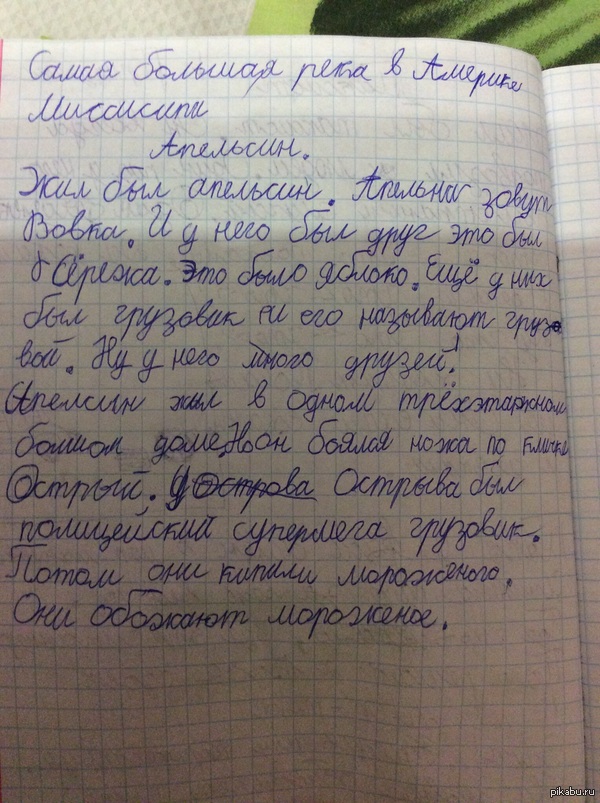 Самая большая река в Америке
Миссисипи
Апельсин.
Жил был апельсин. зовут
Вовка. И у него был друг это был
Серёжа. Это было яблоко. Ещё у них
был грузовик и его называют грузо
вой. Ну у него много друзей!
Апелсин жил в одном трёхэтажном
доме. Но он боялся ножа по кличке
Острый. У Острова Острыва был
полицейский супермега грузовик.
Потом они купили мороженого.
Они обожают мороженое.
pikabu.ru